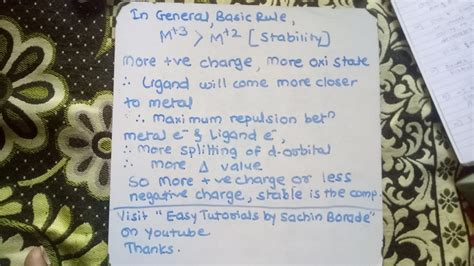 In General, Basic Rule,
M+3 > M+2 [Stability]
more +ve charge, more oxi state
∴ Ligand will come more closer
to metal
∴ maximum repulsion betn
metal e- & Ligand e-,
∴ more splitting of d-orbital
∴ more Δ value
So more +ve charge or less
negative charge, stable is the comp
Visit "Easy Tutorials by Sachin Borade"
on Youtube
Thanks.